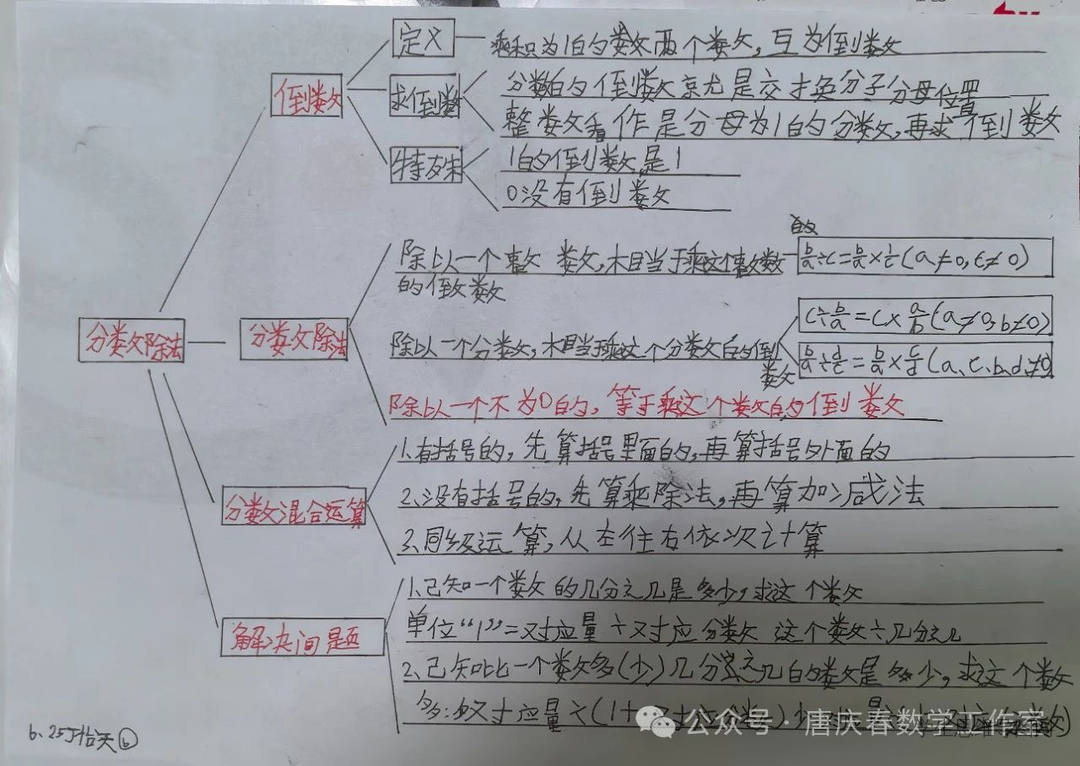 定义
乘积为1的数两个数，互为倒数
倒数
求倒数
分数的倒数就是交换分子分母位置
整数看作是分母为1的分数，再求倒数
特殊
1的倒数是1
0没有倒数
除以一个整数，相当于乘这个整数的倒数
b/a÷c=b/a×1/c(a≠0,c≠0)
分数除法
分数除法
除以一个分数，相当于乘这个分数的倒数
c÷b/a=c×a/b(a≠0,b≠0)
b/a÷d/c=b/a×c/d(a、c、b、d≠0)
除以一个不为0的，等于乘这个数的倒数
1.有括号的，先算括号里面的，再算括号外面的
分数混合运算
2.没有括号的，先算乘除法，再算加减法
3.同级运算，从左往右依次计算
1.已知一个数的几分之几是多少，求这个数
解决问题
单位“1”=对应量÷对应分数 这个数÷几分之几
2.已知比一个数多(少)几分之几的数是多少，求这个数
多:对应量÷(1+对应分数)
6.25丁怡天⑥
公众号·唐庆春数学工作室